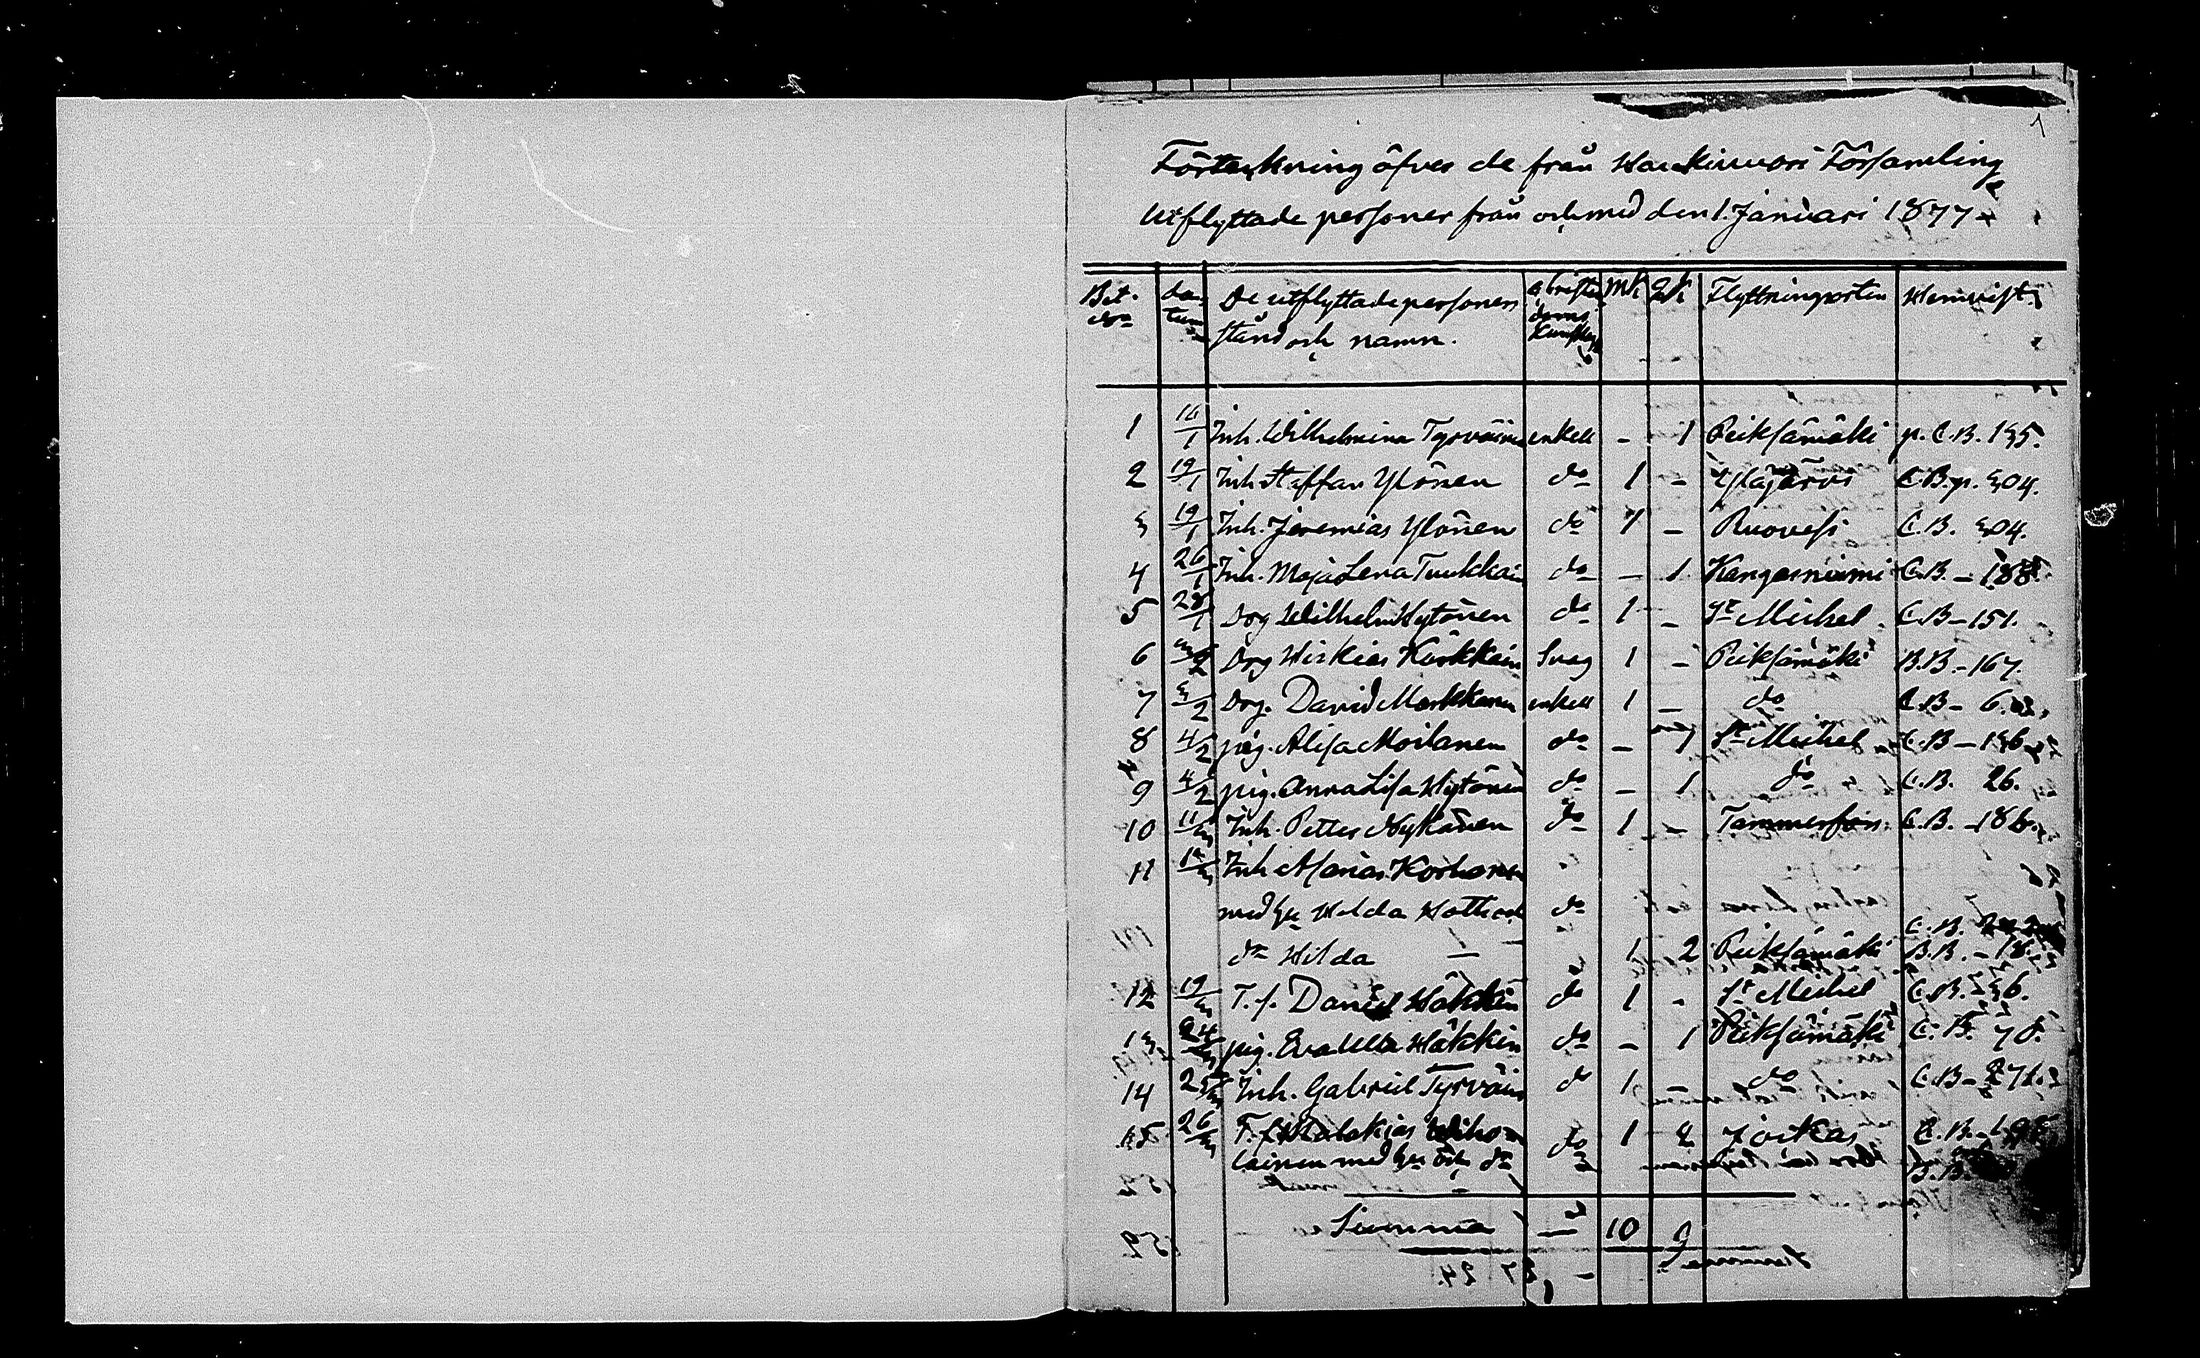 1
Förteckning öfver de från Haukivuori Församling
utflyttade personer från och med den 1. Januari 1877
Bet. No | datum | De utflyttade personers stånd och namn. | Christendoms kunskap | Mk | Qk | Flyttningsorten | Hemvist
1 | 16/1 | Inh. Wilhelmina Tyrväin | enkell | - | 1 | Pieksämäki | p. C.B. 135.
2 | 19/1 | Inh. Staffan Ylönen | do | 1 | - | | C.B. p. 304.
3 | 19/1 | Inh. Jeremias Ylönen | do | 1 | - | Ruovesi | C.B. 304.
4 | 26/1 | Inh. Maja Lena Tuukkain | do | - | 1 | Kangasniemi | C.B. - 188
5 | 28/1 | Drg Wilhelm Hytönen | do | 1 | - | St Michel | C.B - 151.
6 | 3/2 | Drg Hiskias Kärkkäin | Svag | 1 | - | Pieksämäki | B.B. - 167.
7 | 3/2 | Drg. David Markkanen | enkell | 1 | - | do | C.B - 6.
8 | 4/2 | pig. Alisa Moilanen | do | - | 1 | St Michel | C.B - 136
9 | 4/2 | pig. Anna Lisa Hytönen | do | - | 1 | do | C.B. 26.
10 | 11/3 | Inh. Petter Nykänen | do | 1 | - | Tammerfors | C.B. - 186.
11 | 12/3 | Inh Marias Korhonen
med hu Hilda och | do | | | | C.B.
dr Hilda | - | 1 | 2 | Pieksämäki | B.B. - 18.
12 | 19/3 | T.f. Daniel Häkkin | do | 1 | - | St Michel | C.B. - 36.
13 | 24/3 | pig. Eva Ulla Häkkin | do | - | 1 | Pieksämäki | C.B. 78.
14 | 25/3 | Inh. Gabriel Tyrväin | do | 1 | - | do | C.B - 271.
15 | 26/3 | T.f Malakias Wiho= | do | 1 | 2 | Jorkas | C.B.
lainen med hu och dr | | | | | B.B.
Summa | - | 10 | 9